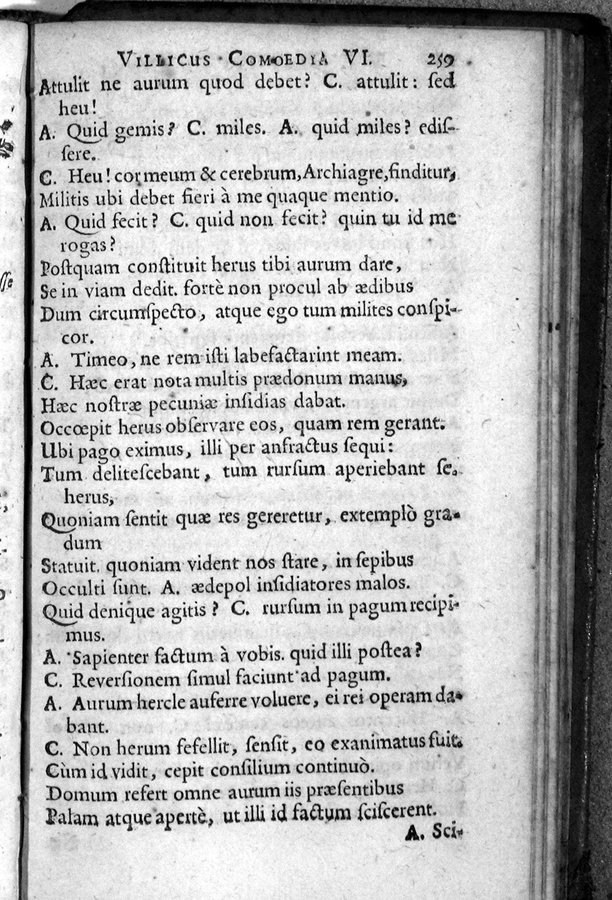 VILLICUS COMOEDIA VI. 259
Attulit ne aurum quod debet? C. attulit: ſed
heu!
A. Quid gemis? C. miles. A. quid miles? ediſ-
ſere.
C. Heu! cor meum & cerebrum, Archiagre, finditur,
Militis ubi debet fieri à me quaque mentio.
A. Quid fecit? C. quid non fecit? quin tu id me
rogas?
Poſtquam conſtituit herus tibi aurum dare,
Se in viam dedit. fortè non procul ab ædibus
Dum circumſpecto, atque ego tum milites conſpi-
cor.
A. Timeo, ne rem iſti labefactarint meam.
C. Hæc erat nota multis prædonum manus,
Hæc noſtræ pecuniæ inſidias dabat.
Occœpit herus obſervare eos, quam rem gerant.
Ubi pago eximus, illi per anfractus ſequi:
Tum deliteſcebant, tum rurſum aperiebant ſe.
herus,
Quoniam ſentit quæ res gereretur, extemplò gra-
dum
Statuit. quoniam vident nos ſtare, in ſepibus
Occulti ſunt. A. ædepol inſidiatores malos.
Quid denique agitis? C. rurſum in pagum recipi-
mus.
A. Sapienter factum à vobis. quid illi poſtea?
C. Reverſionem ſimul faciunt ad pagum.
A. Aurum hercle auferre voluere, ei rei operam da-
bant.
C. Non herum fefellit, ſenſit, eo exanimatus fuit.
Cùm id vidit, cepit conſilium continuò.
Domum refert omne aurum iis præſentibus
Palam atque apertè, ut illi id factum ſciſcerent.
A. Sci-